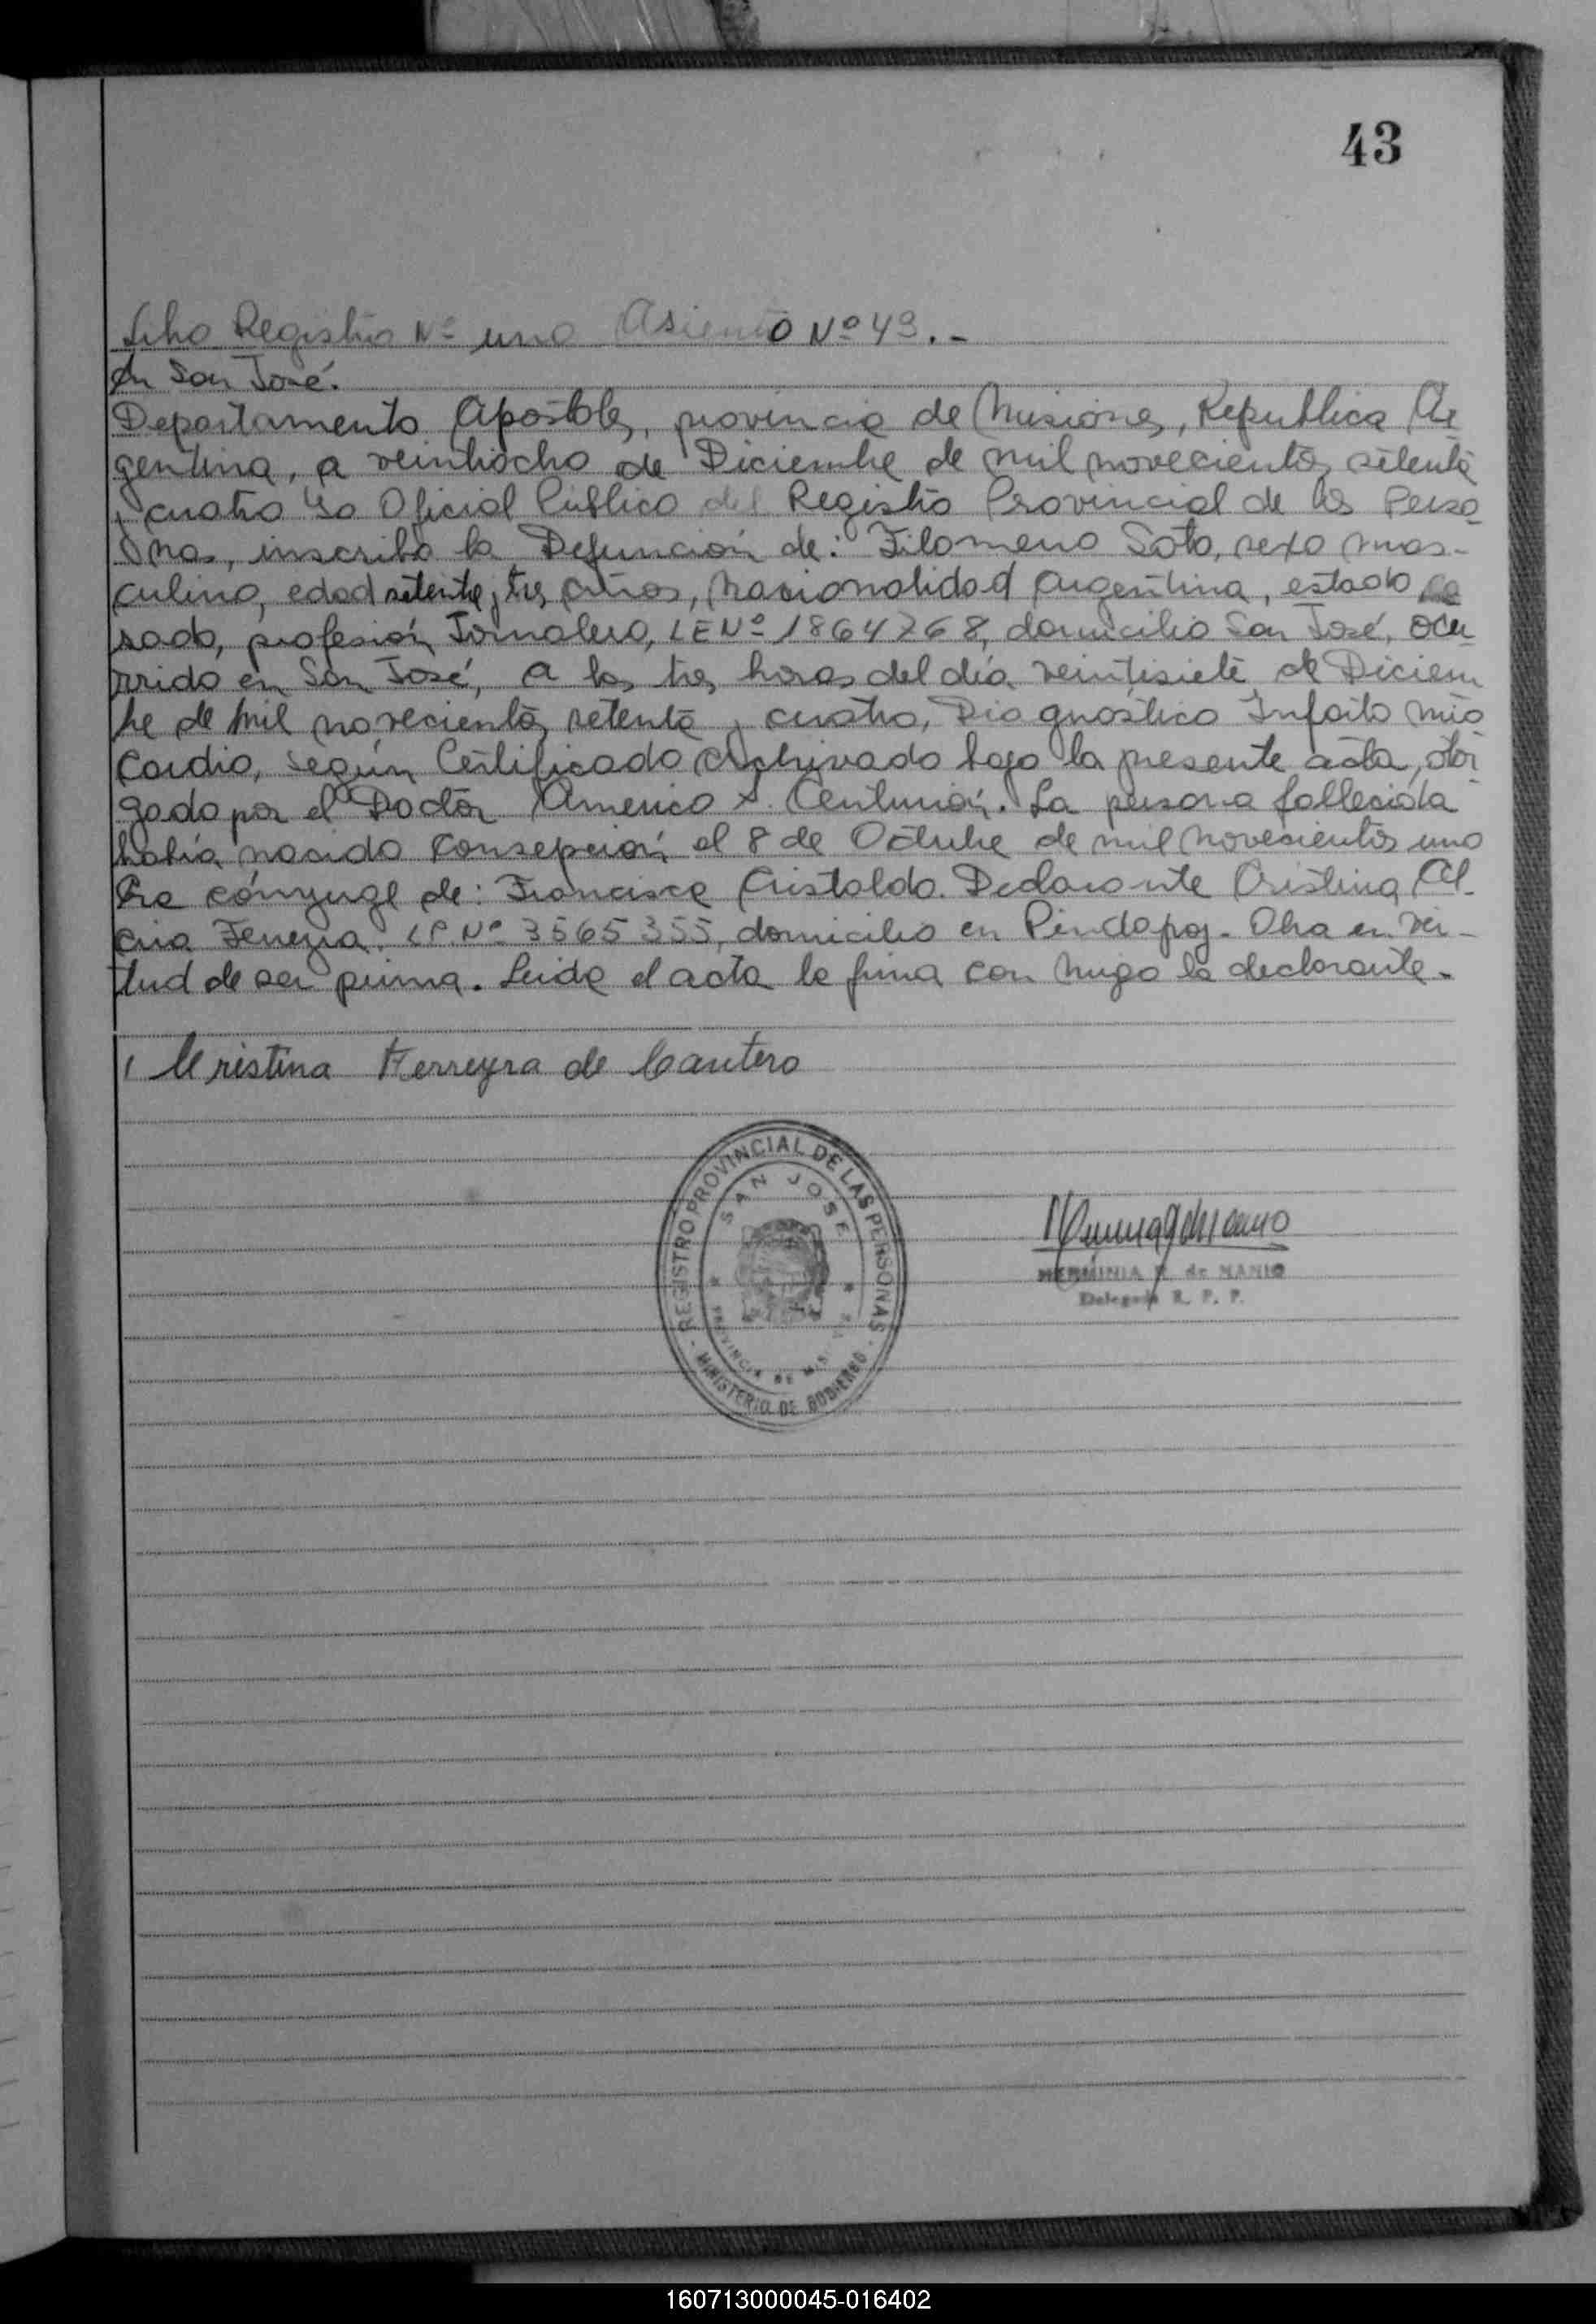 43
Libro Registro Nº uno Asiento Nº 43.-
En San José.
Departamento Apóstoles, provincia de Misiones, Republica Ar
gentina, a veintiocho de Diciembre de mil novecientos setenta
y cuatro Yo Oficial Público del Registro Provincial de las Perso
nas, inscribo la Defunción de: Filomeno Soto, sexo mas-
culino, edad setenta y tres años, nacionalidad argentina, estado ca
sado, profesión Jornalero, LE Nº 1864268, domicilio San José, ocu
rrido en San José, a las tres horas del día veintisiete de Diciem
bre de mil novecientos setenta y cuatro, Diagnostico Infarto mio
cardio, según Certificado archivado bajo la presente acta, otor
gado por el Doctor Americo A. Centurión. La persona fallecida
había nacido Consepción el 8 de Octubre de mil novecientos uno
Era cónyuge de: Francisca Cristaldo. Declarante Cristina Al
Ferreyra. Nº 3565355, domicilio en Pindapoy. Obra en vir-
tud de ser prima. Leida el acta la firma con migo la declarante.
Cristina Ferreyra de Cantero
REGISTRO PROVINCIAL DE LAS PERSONAS
SAN JOSE
PROVINCIA DE MISIONES
MINISTERIO DE GOBIERNO
HERMINIA de NANIO
Delegada R. P. P.
160713000045-016402